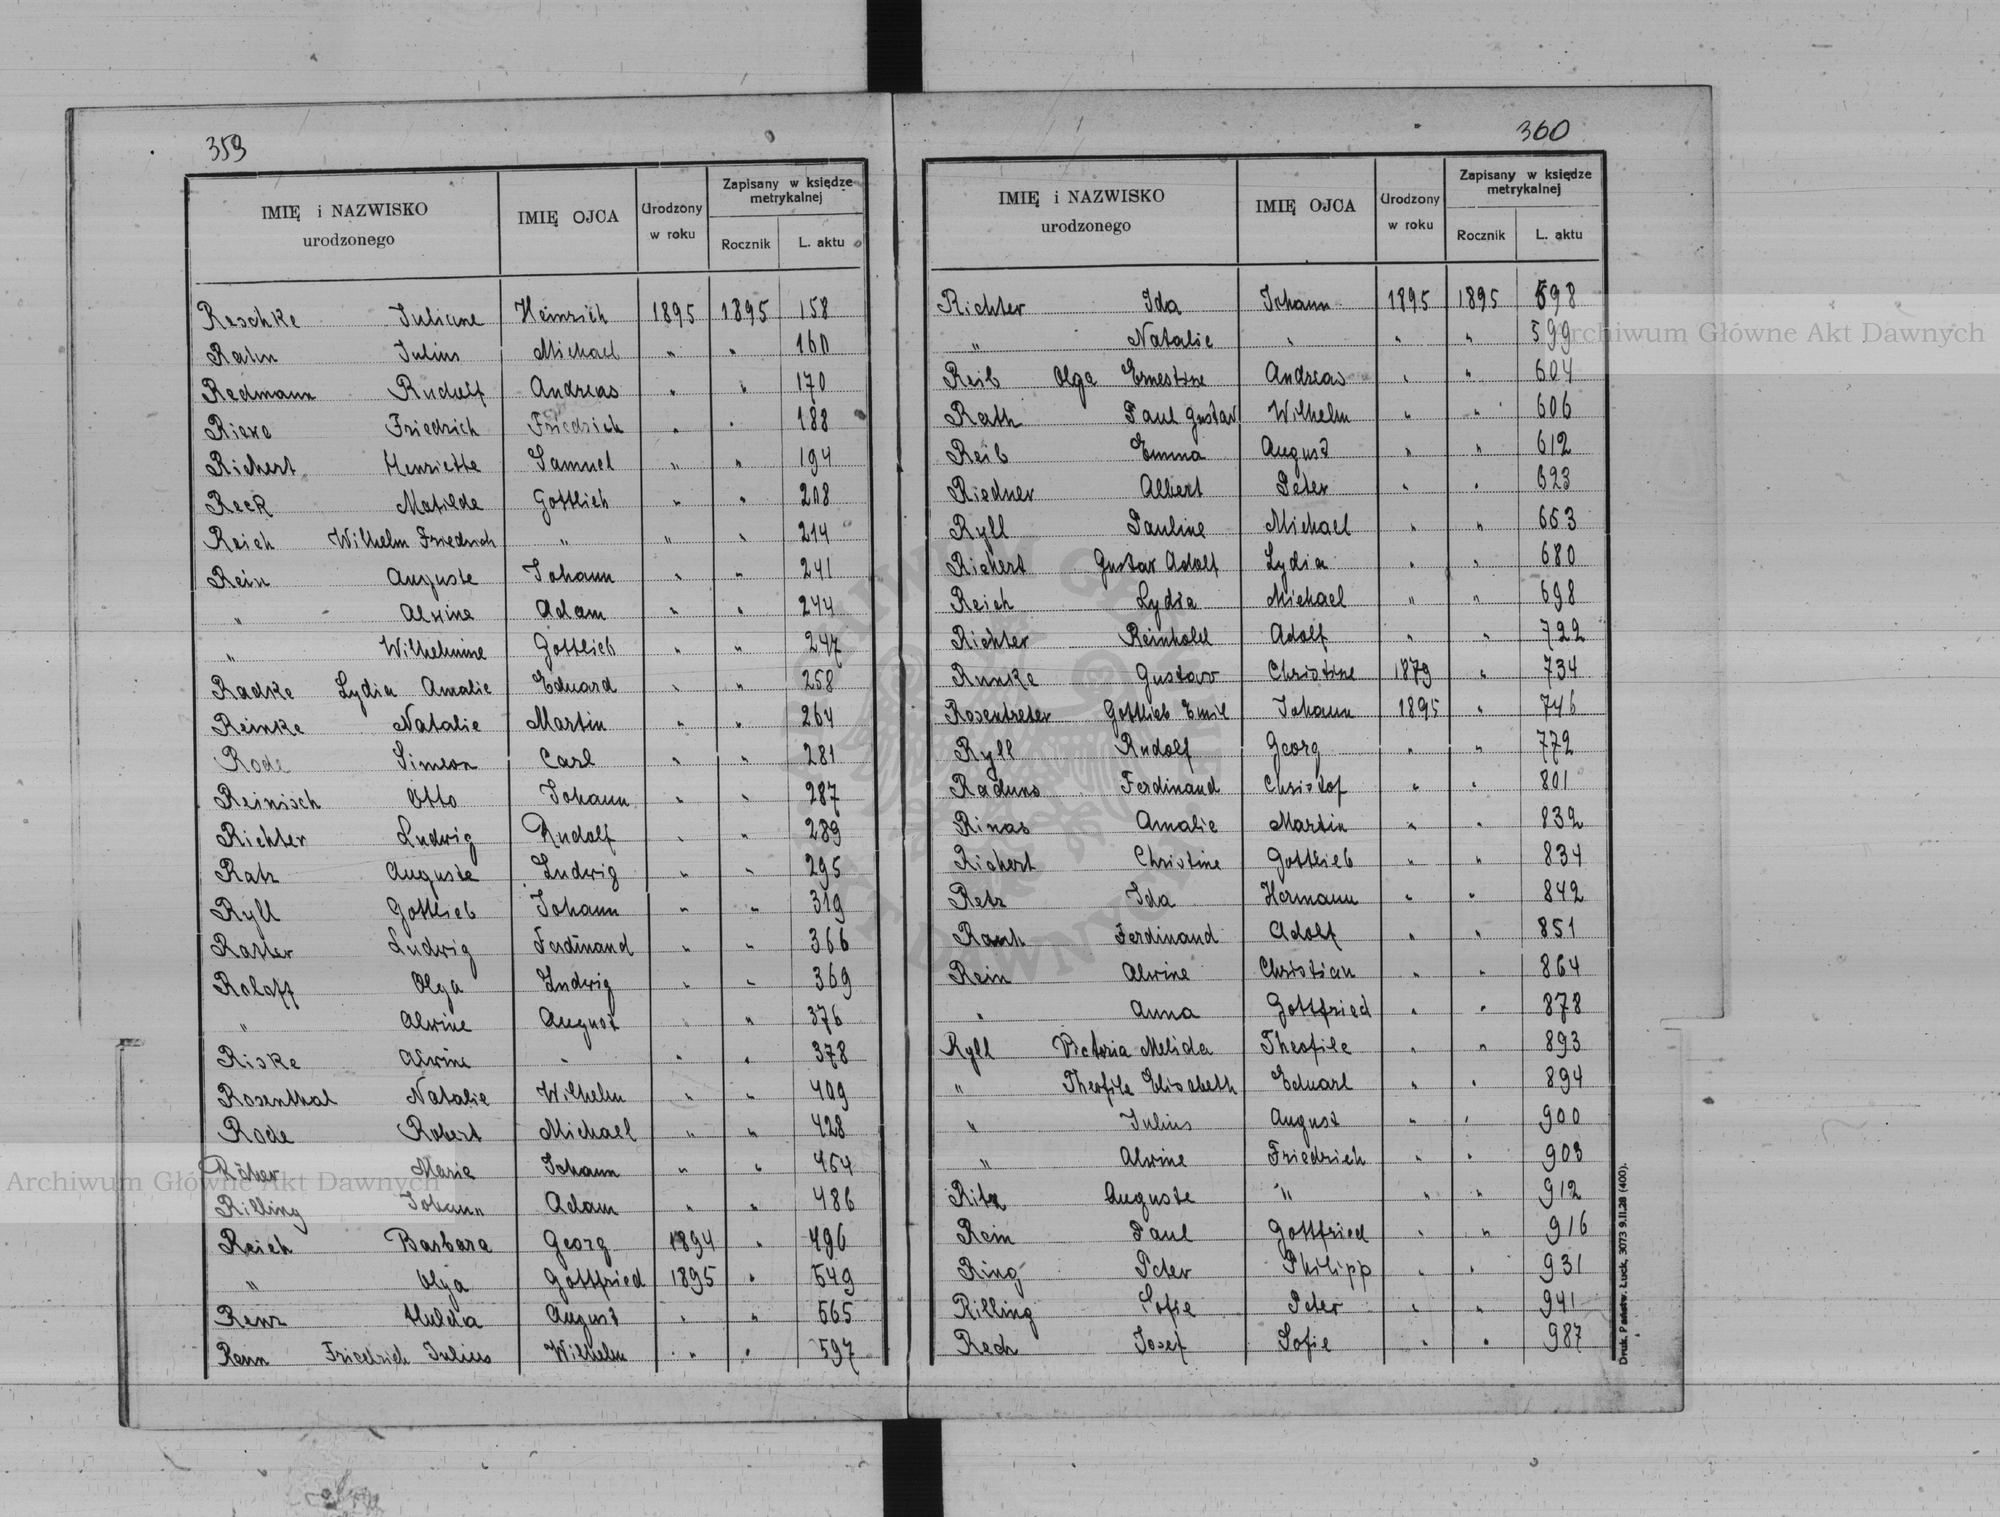 359
IMIĘ i NAZWISKO urodzonego IMIĘ OJCA Urodzony w roku Zapisany w księdze metrykalnej Rocznik L. aktu
Reschke Juliane Heinrich 1895 1895 158
Rahn Julius Michael " " 160
Redmann Rudolf Andreas " " 170
Friedrich Friedrich " " 188
Richert Henriette Samuel " " 194
Reck Matilde Gottlieb " " 208
Reich Wilhelm Friedrich " " " 214
Rein Auguste Johann " " 241
" Alwine Adam " " 244
" Wilhelmine Gottlieb " " 247
Radke Lydia Amalie Eduard " " 258
Reinke Natalie Martin " " 264
Rode Simeon Carl " " 281
Reinisch Otto Johann " " 287
Richter Ludwig Rudolf " " 289
Ratz Auguste Ludwig " " 295
Ryll Gottlieb Johann " " 319
Ratter Ludwig Ferdinand " " 366
Roloff Olga Ludwig " " 369
" Alwine August " " 376
Riske Alwine " " " 378
Rosenthal Natalie Wilhelm " " 409
Rode Robert Michael " " 428
Marie Johann " " 464
Rilling Johann Adam " " 486
Reich Barbara Georg 1894 " 496
" Olga Gottfried 1895 " 549
Renz Hulda August " " 565
Renn Friedrich Julius Wilhelm " " 597
360
IMIĘ i NAZWISKO urodzonego IMIĘ OJCA Urodzony w roku Zapisany w księdze metrykalnej Rocznik L. aktu
Richter Ida Johann 1895 1895 598
" Natalie " " " 599
Reib Olga Ernestine Andreas " " 604
Rath Paul Gustav Wilhelm " " 606
Reib Emma August " " 612
Riedner Albert Peter " " 623
Ryll Pauline Michael " " 653
Richert Gustav Adolf Lydia " " 680
Reich Lydia Michael " " 698
Richter Reinhold Adolf " " 722
Runke Gustav Christine 1879 " 734
Rosentreter Gottlieb Emil Johann 1895 " 746
Ryll Rudolf Georg " " 772
Raduns Ferdinand Christof " " 801
Rinas Amalie Martin " " 832
Richert Christine Gottlieb " " 834
Retz Ida Hermann " " 842
Rauh Ferdinand Adolf " " 851
Rein Alwine Christian " " 864
" Anna Gottfried " " 878
Ryll Victoria Melida Theofile " " 893
" Theofile Elisabeth Eduard " " 894
" Julius August " " 900
" Alwine Friedrich " " 903
Ritz Auguste " " " 912
Rein Paul Gottfried " " 916
Ring Peter Philipp " " 931
Rilling Sofie Peter " " 941
Rech Josef Sofie " " 987
Druk. Państw. Łuck, 3073 9.II.28 (400).
Archiwum Główne Akt Dawnych
Archiwum Główne Akt Dawnych